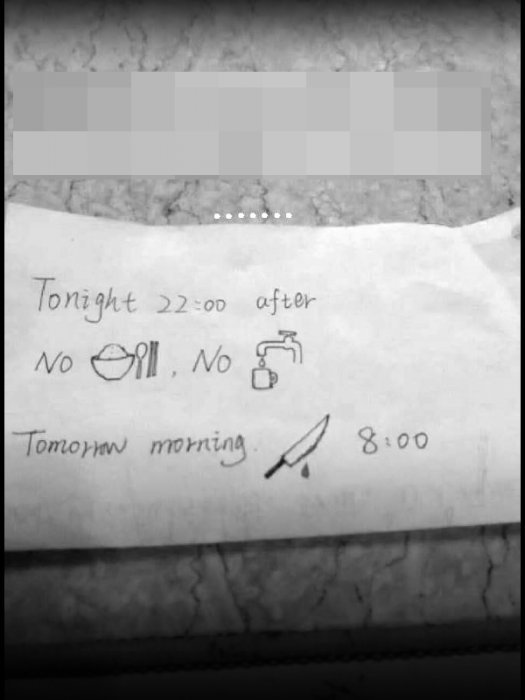 Tonight 22:00 after
No , No
Tomorrow morning. 8:00